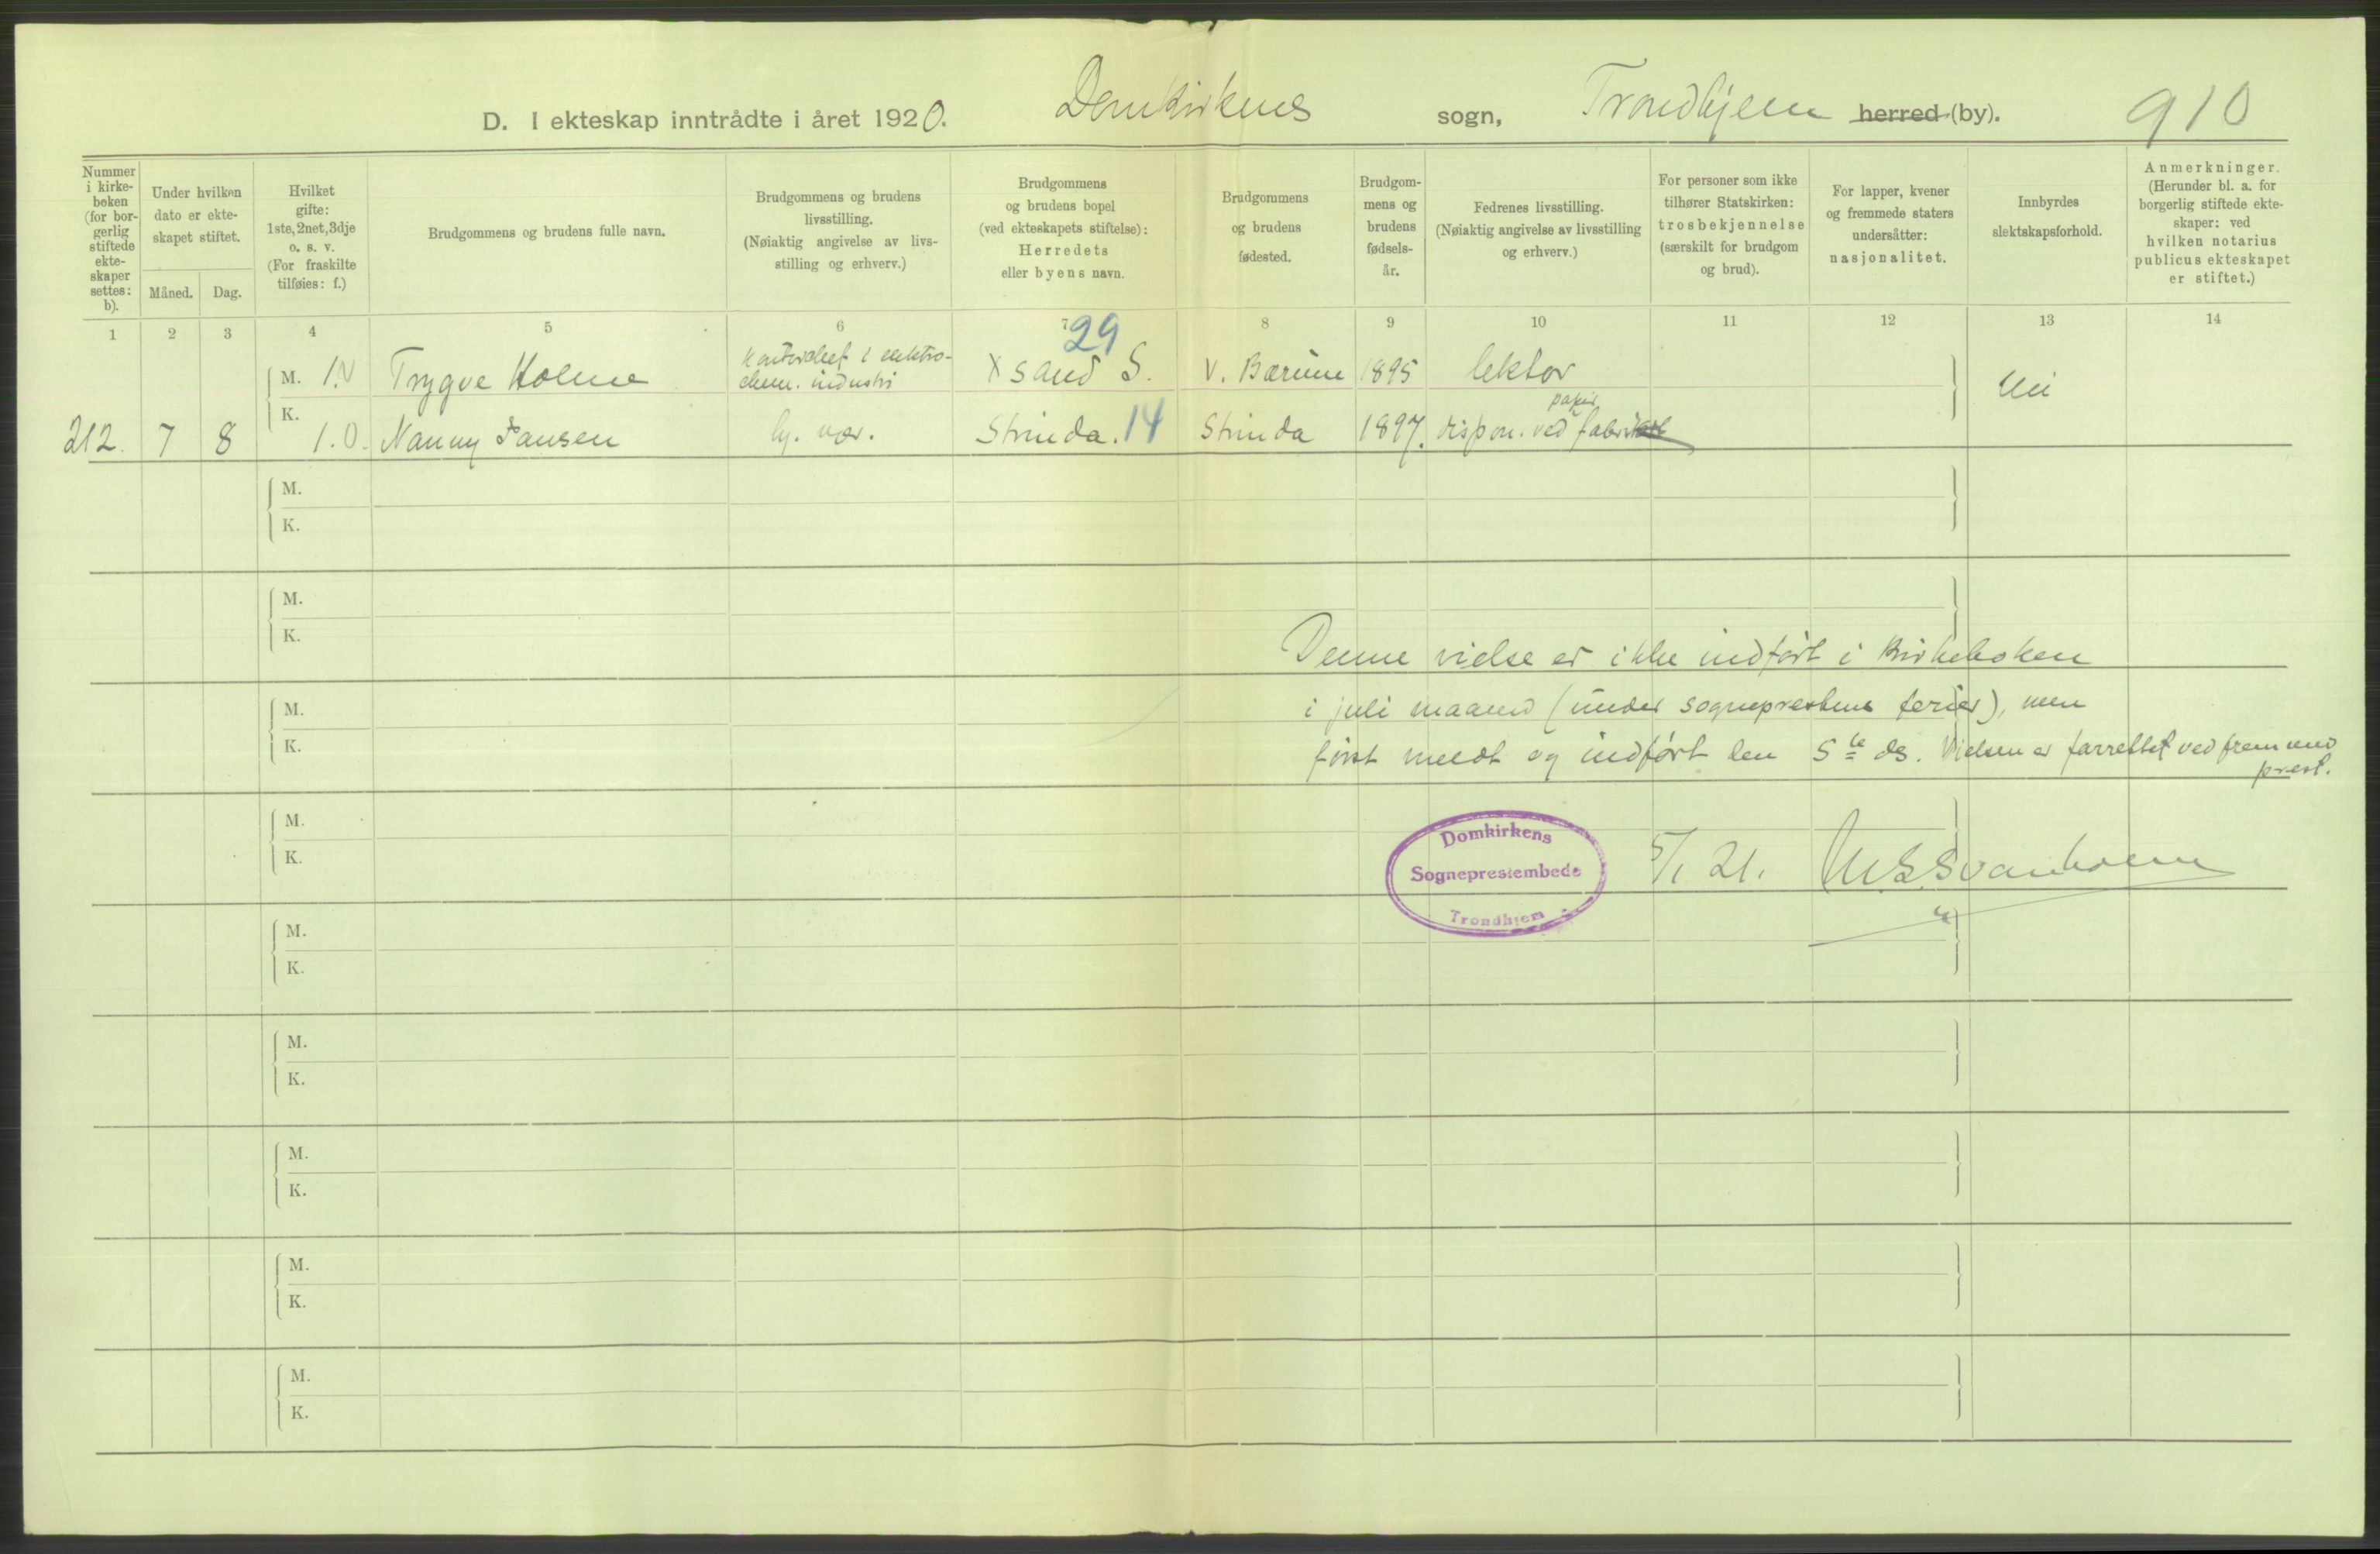 D. I ekteskap inntrådte i året 1920. Domkirkens sogn, Trondhjem herred (by). 910
Nummer
i kirke-
boken
(for bor-
gerlig
stiftede
ekte-
skaper
settes:
b).
Under hvilken
dato er ekte-
skapet stiftet.
Måned. Dag.
Hvilket
gifte:
1ste, 2net, 3dje
o. s. v.
(For fraskilte
tilføies: f.)
Brudgommens og brudens fulle navn.
Brudgommens og brudens
livsstilling.
(Nøiaktig angivelse av livs-
stilling og erhverv.)
Brudgommens
og brudens bopel
(ved ekteskapets stiftelse):
Herredets
eller byens navn.
Brudgommens
og brudens
fødested.
Brudgom-
mens og
brudens
fødsels-
år.
Fedrenes livsstilling.
(Nøiaktig angivelse av livsstilling
og erhverv.)
For personer som ikke
tilhører Statskirken:
trosbekjennelse
(særskilt for brudgom
og brud).
For lapper, kvener
og fremmede staters
undersåtter:
nasjonalitet.
Innbyrdes
slektskapsforhold.
Anmerkninger.
(Herunder bl. a. for
borgerlig stiftede ekte-
skaper: ved
hvilken notarius
publicus ekteskapet
er stiftet.)
1 2 3 4 5 6 7 8 9 10 11 12 13 14
29
M. 1.N Trygve Holme kontorchef i elektro-
chem. industri X sand S. V. Bærum 1895 lektor Nei
K.
212. 7 8 1.O. Nanny Jansen hj. vær. Strinda. 14 Strinda 1897. dispon. ved papir fabrik
M.
K.
M.
K.
Denne vielse er ikke indført i kirkeboken
M.
i juli maaned (under sogneprestens ferier), men
K.
først meldt og indført den 5te ds. Vielsen er forrettet ved fremmed
prest.
M.
K.
Domkirkens
Sogneprestembede
Trondhjem
5/1 21.
M.
K.
M.
K.
M.
K.
M.
K.
M.
K.